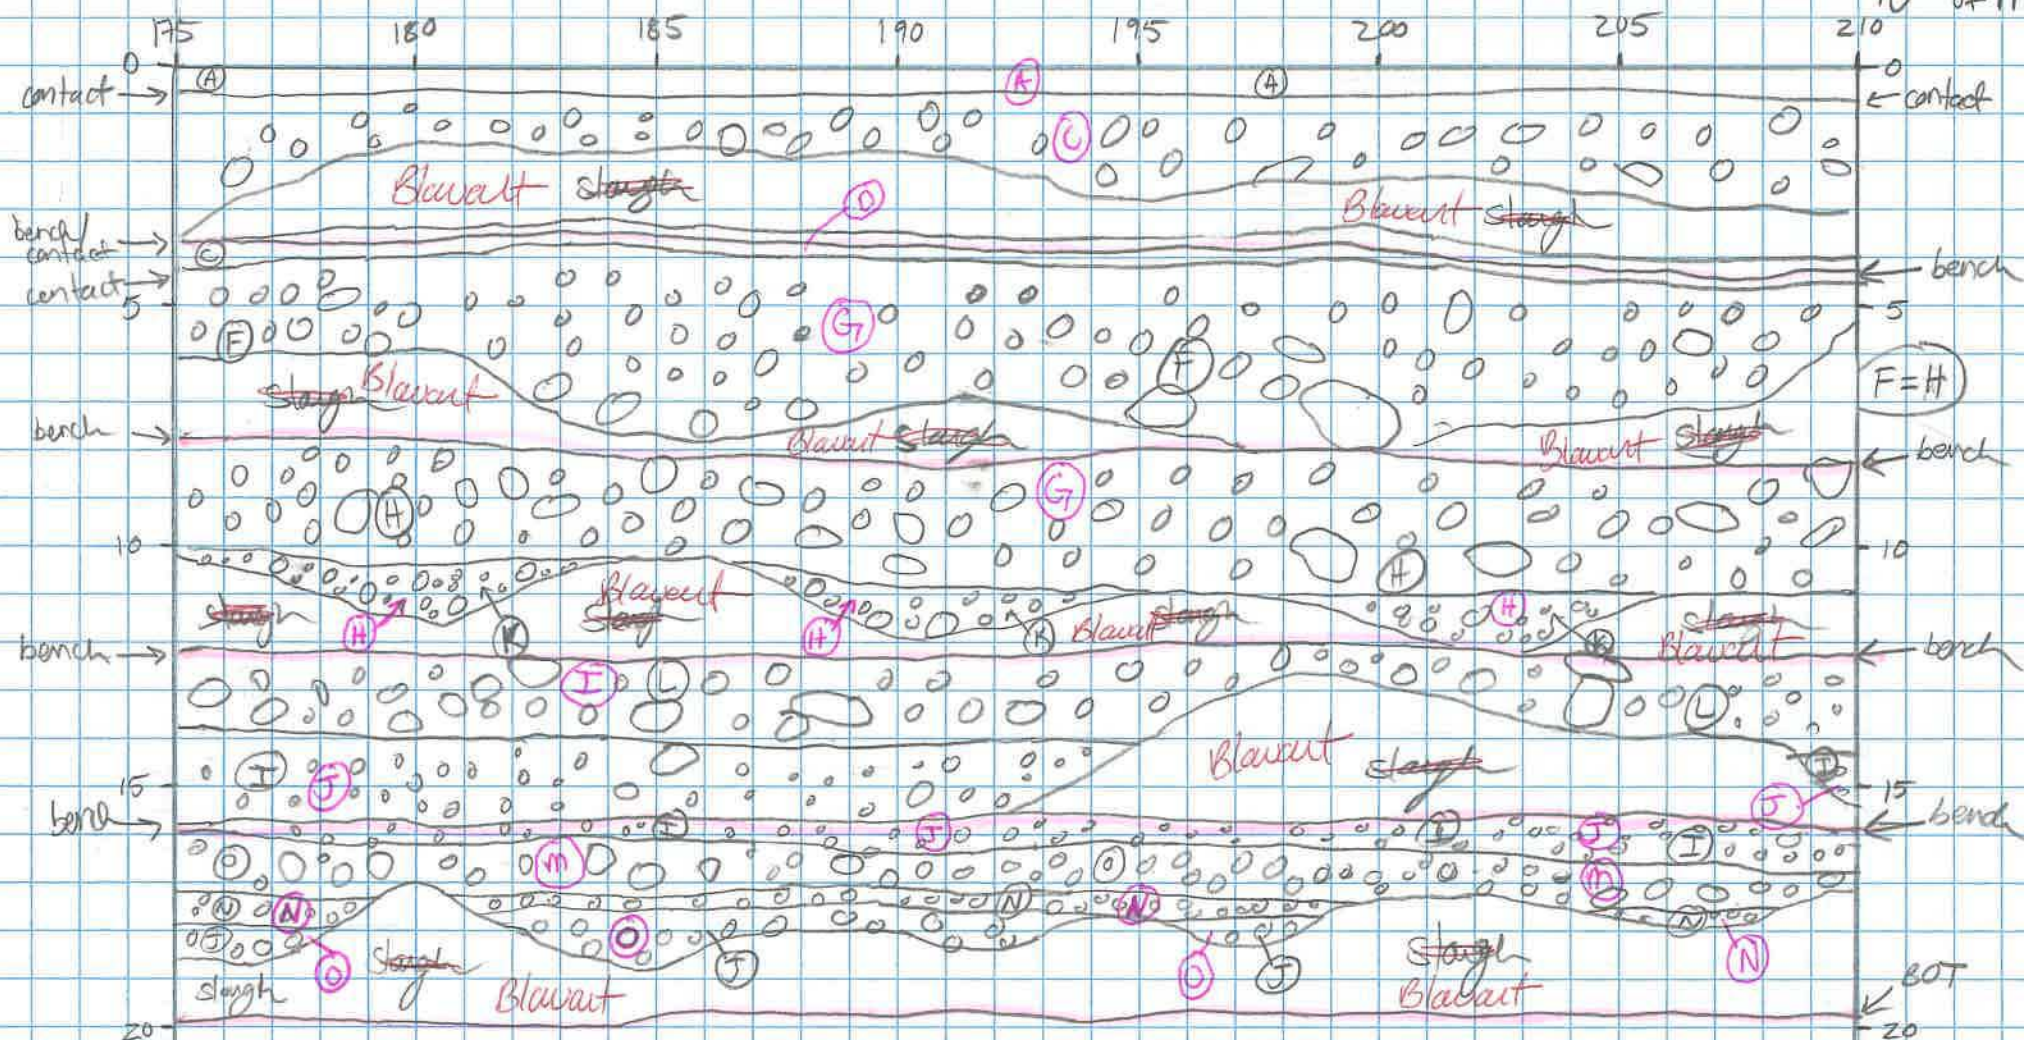 of 11
175 180 185 190 195 200 205 210
0 A A A 0
contact contact
C
Blowout slough D Blowout slough
bench/
contact C
contact bench
5 G 5
F F F=H
slough Blowout
bench Blowout slough Blowout slough bench
G
H
10 H 10
Blowout
slough slough H Blowout slough slough
H K H K K Blowout
bench bench
I L L
Blowout slough
I J I
15 J 15
bench I J I J I bench
O m O m
N N N N N
J O J O J N
slough slough Blowout slough BOT
Blowout
20 20